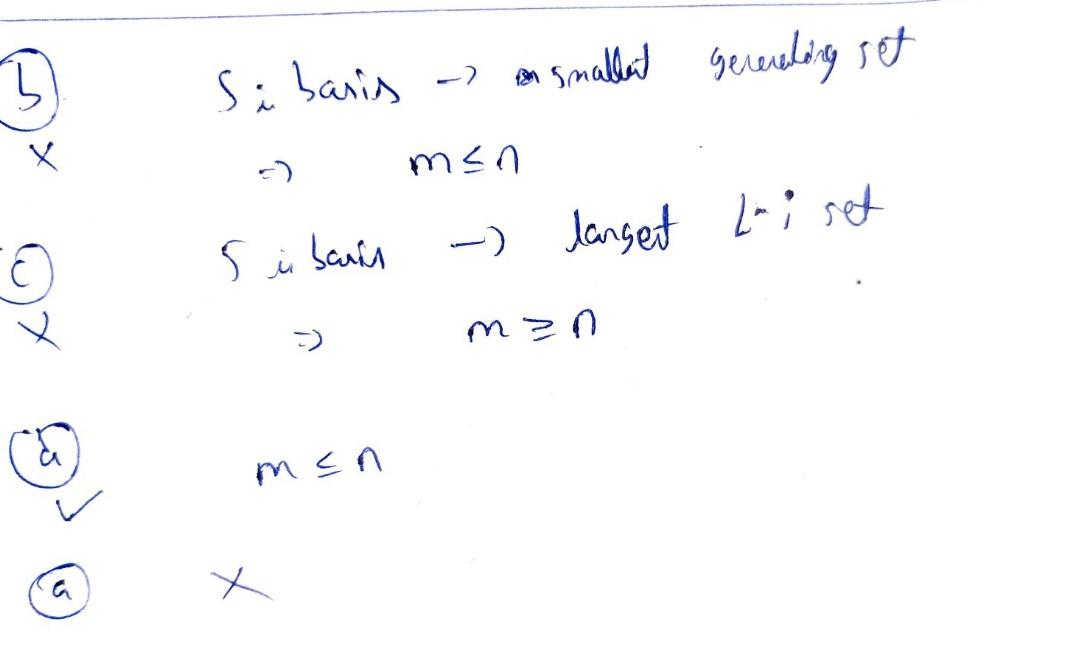 (b) S is basis -> smallest generating set
X => m ≤ n
(c) S is basis -> largest L-i set
X => m ≥ n
(d) m ≤ n
✓
(a) X